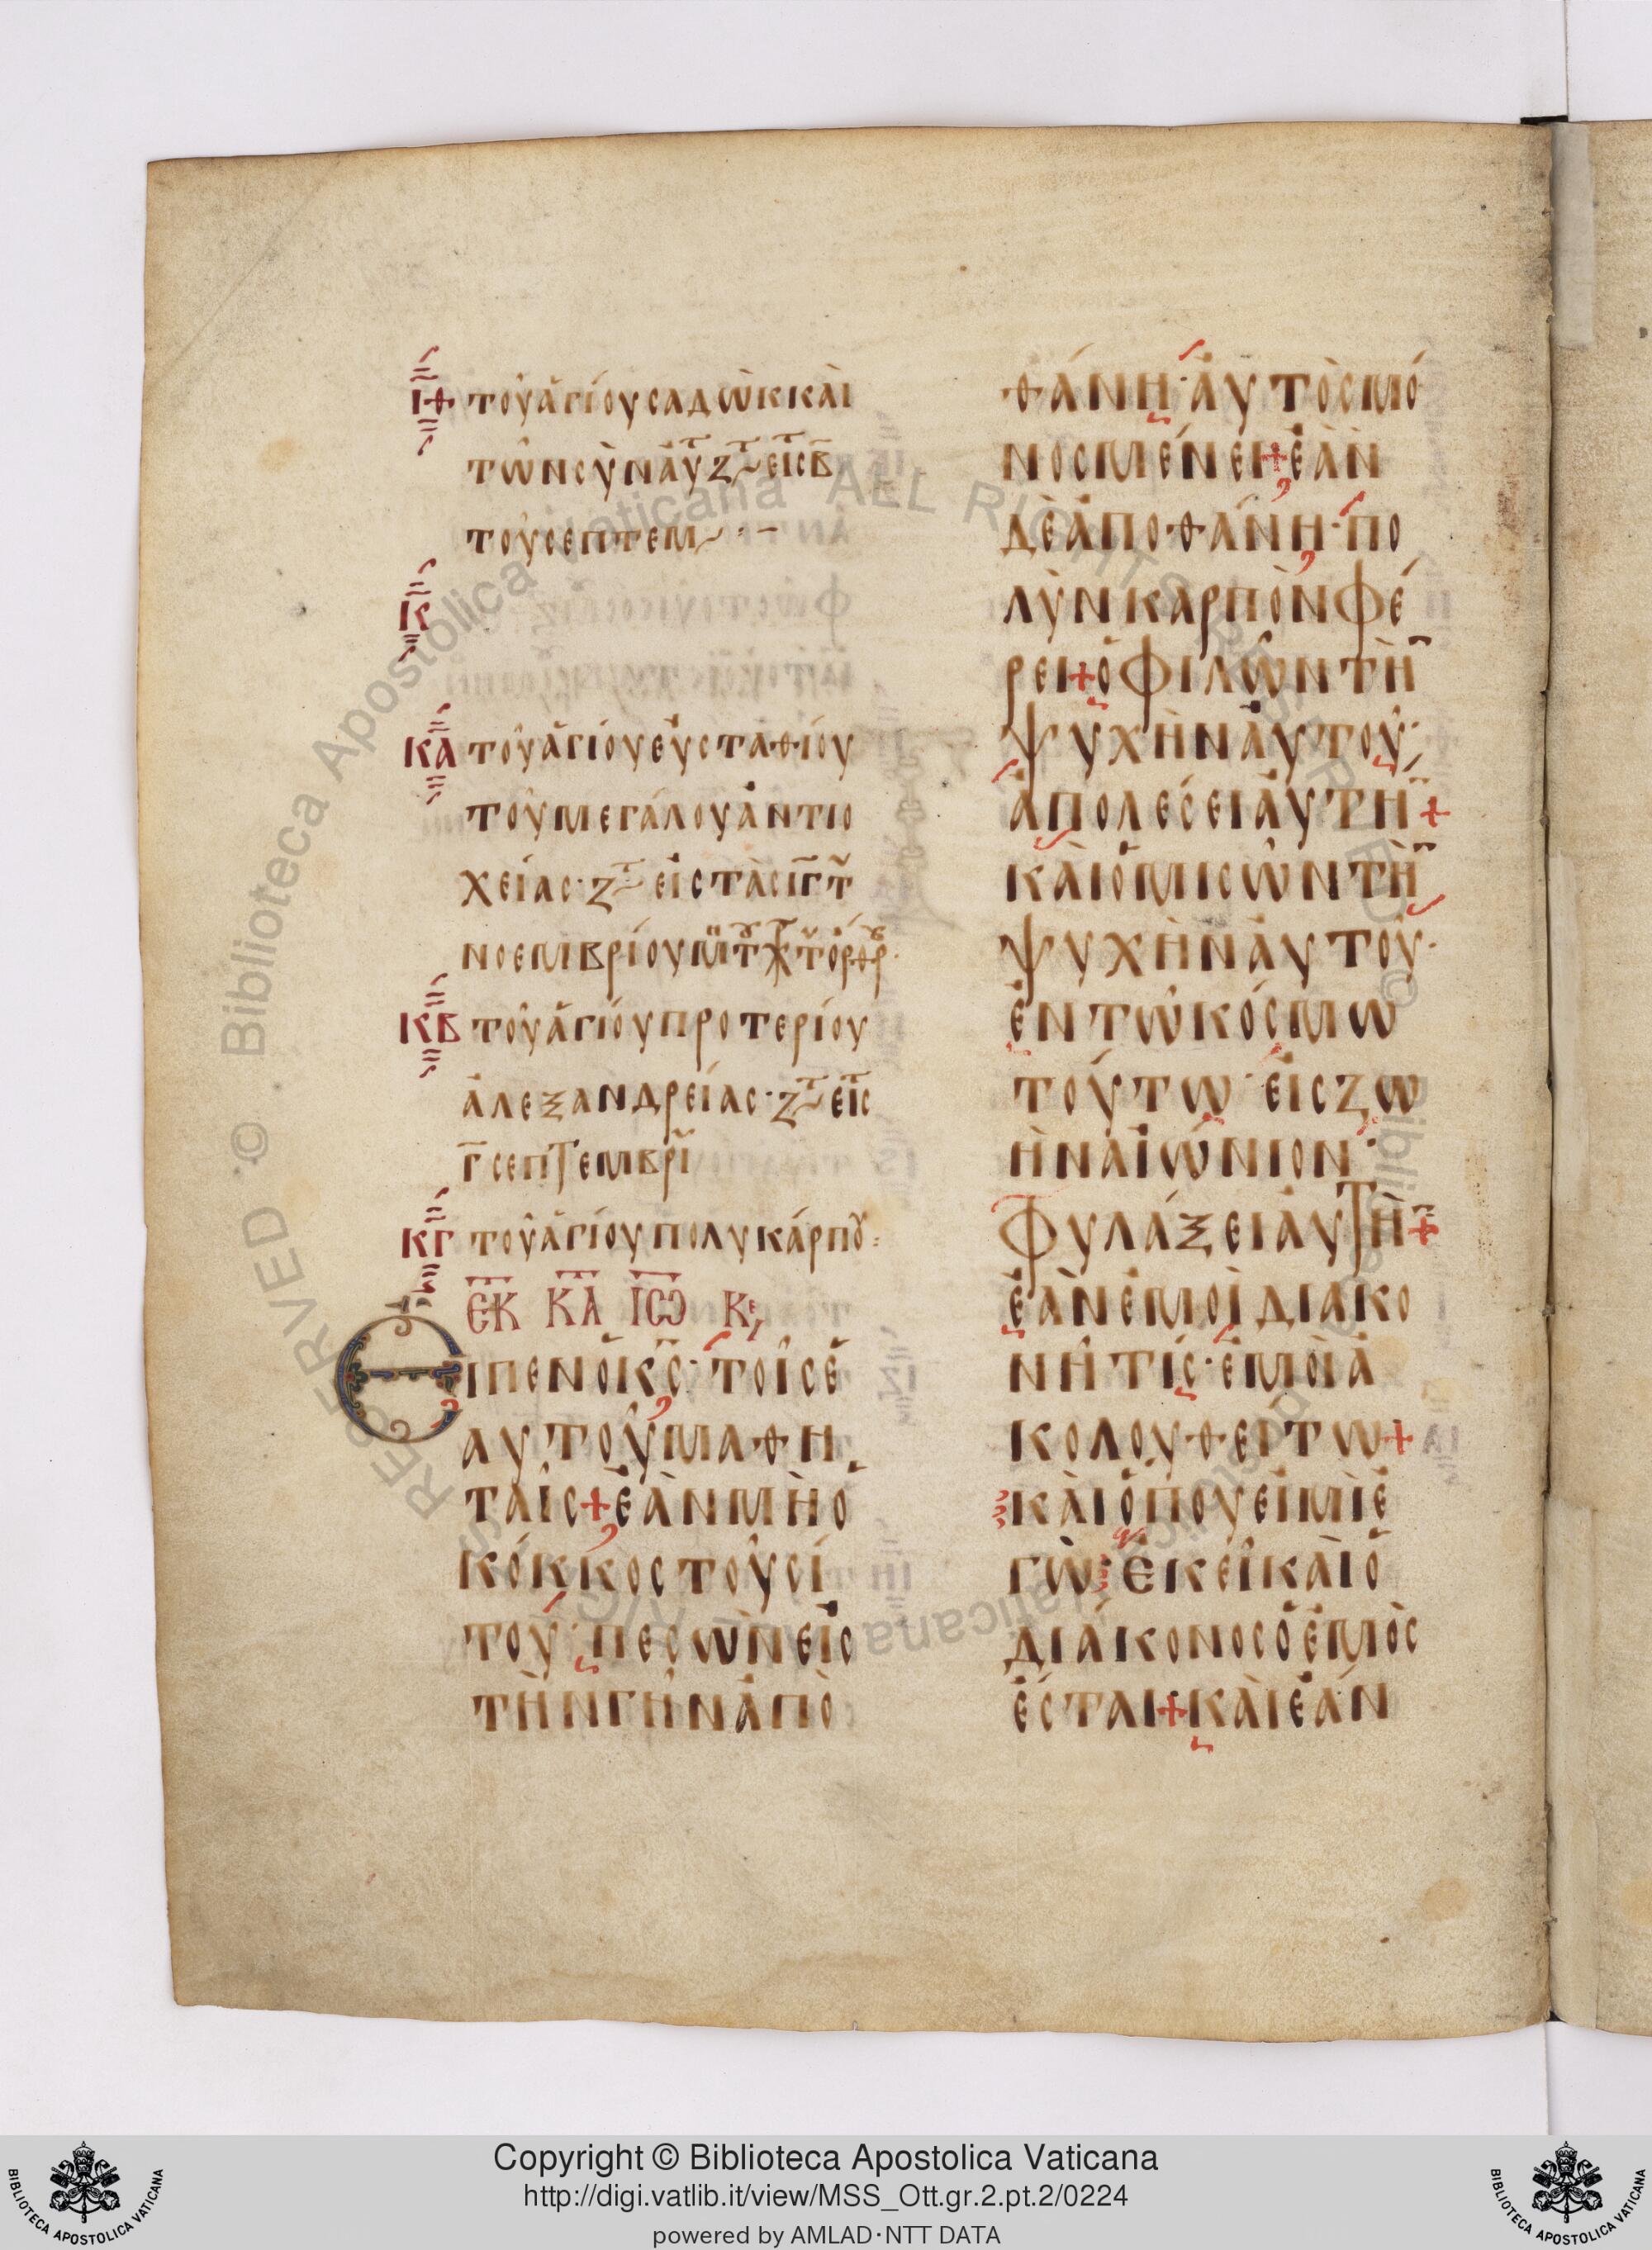 ΙΘ ΤΟΥ ΑΓΙΟΥ ΣΑΔΩΚ ΚΑΙ
ΤΩΝ ΣΥΝ ΑΥΤ ΖΤ ΕΙΣ Β
ΤΟΥ ΣΕΠΤΕΜ
Κ
ΚΑ ΤΟΥ ΑΓΙΟΥ ΕΥΣΤΑΘΙΟΥ
ΤΟΥ ΜΕΓΑΛΟΥ ΑΝΤΙΟ
ΧΕΙΑΣ· ΖΤ ΕΙΣ ΤΑΣ ΙΓ Τ
ΝΟΕΜΒΡΙΟΥ
ΚΒ ΤΟΥ ΑΓΙΟΥ ΠΡΟΤΕΡΙΟΥ
ΑΛΕΞΑΝΔΡΕΙΑΣ· ΖΤ ΕΙΣ
Γ ΣΕΠΤΕΜΒΡΙ
ΚΓ ΤΟΥ ΑΓΙΟΥ ΠΟΛΥΚΑΡΠΟΥ:
ΕΚ ΚΑ ΙΩ ΚΕ
ΕΙΠΕΝ Ὁ ΚΣ· ΤΟΙΣ Ε
ΑΥΤΟΥ ΜΑΘΗ
ΤΑΙΣ + ΕΑΝ ΜΗ Ο
ΚΟΚΚΟΣ ΤΟΥ ΣΙ
ΤΟΥ· ΠΕΣΩΝ ΕΙΣ
ΤΗΝ ΓΗΝ ΑΠΟ
ΘΑΝΗ· ΑΥΤΟΣ ΜΟ
ΝΟΣ ΜΕΝΕΙ + ΕΑΝ
ΔΕ ΑΠΟΘΑΝΗ· ΠΟ
ΛΥΝ ΚΑΡΠΟΝ ΦΕ
ΡΕΙ + Ο ΦΙΛΩΝ ΤΗ
ΨΥΧΗΝ ΑΥΤΟΥ·
ΑΠΟΛΕΣΕΙ ΑΥΤΗ +
ΚΑΙ Ο ΜΙΣΩΝ ΤΗ
ΨΥΧΗΝ ΑΥΤΟΥ·
ΕΝ ΤΩ ΚΟΣΜΩ
ΤΟΥΤΩ· ΕΙΣ ΖΩ
ΗΝ ΑΙΩΝΙΟΝ·
ΦΥΛΑΞΕΙ ΑΥΤΗ +
ΕΑΝ ΕΜΟΙ ΔΙΑΚΟ
ΝΗ ΤΙΣ· ΕΜΟΙ Α
ΚΟΛΟΥΘΕΙΤΩ +
ΚΑΙ ΟΠΟΥ ΕΙΜΙ Ε
ΓΩ· ΕΚΕΙ ΚΑΙ Ο
ΔΙΑΚΟΝΟΣ Ο ΕΜΟΣ
ΕΣΤΑΙ + ΚΑΙ ΕΑΝ
Biblioteca Apostolica Vaticana ALL RIGHTS RESERVED ©
Copyright © Biblioteca Apostolica Vaticana
http://digi.vatlib.it/view/MSS_Ott.gr.2.pt.2/0224
powered by AMLAD·NTT DATA
BIBLIOTECA APOSTOLICA VATICANA
BIBLIOTECA APOSTOLICA VATICANA